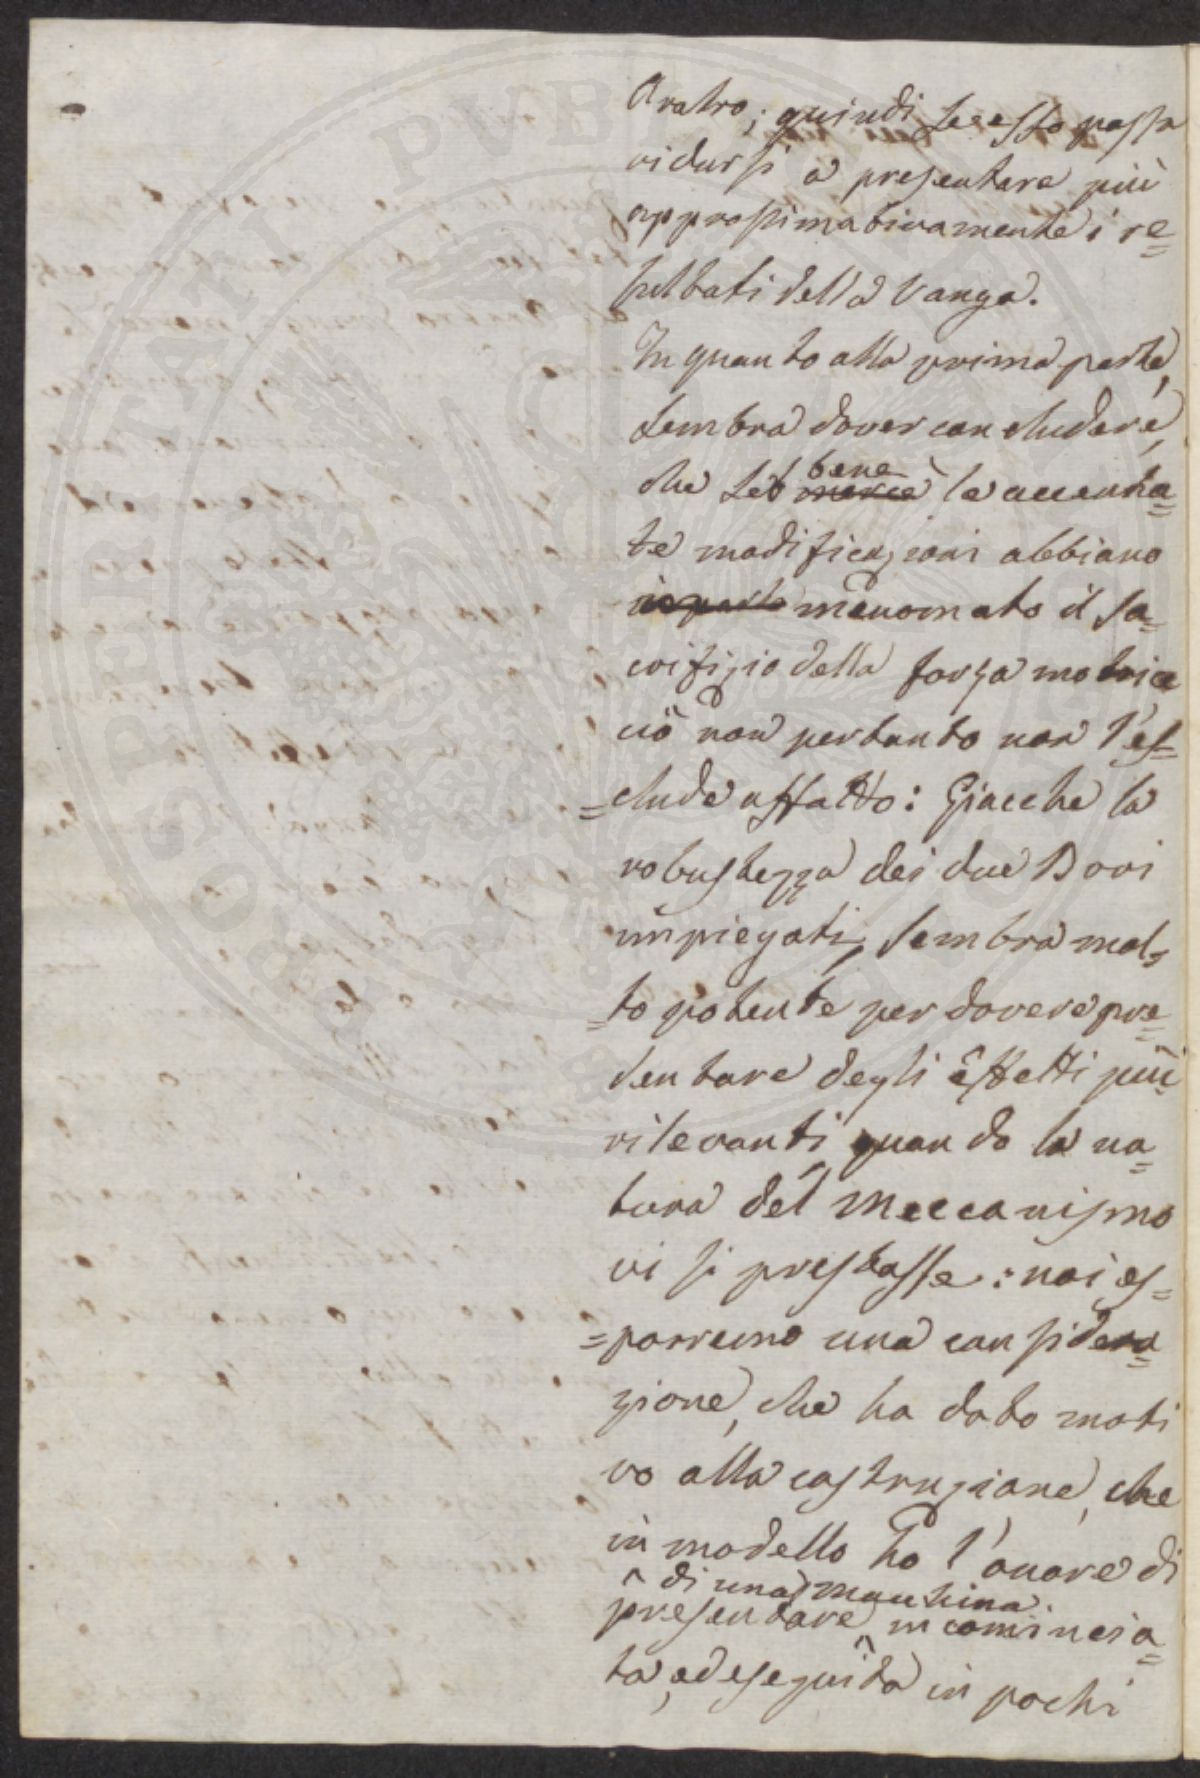 Aratro; quindi se esso possa
ridursi a presentare più
approssimativamente i re=
sultati della Vanga.
In quanto alla prima parte,
sembra dover concludere,
che seb bene le accenna=
te modificazioni abbiano
menomato il sa=
crifizio della forza motrice
ciò non pertanto non l'es=
=clude affatto: Giacche la
robustezza dei due Bovi
impiegati, sembra mol=
=to potente per dovere pre=
sentare degli effetti più
rilevanti, quando la na=
tura del Meccanismo
vi si prestasse: noi es=
=porremo una considera=
zione, che ha dato moti
vo alla costruzione, che
in modello ho l'onore di
di una macchina
presentare incomincia=
ta, ed eseguita in pochi